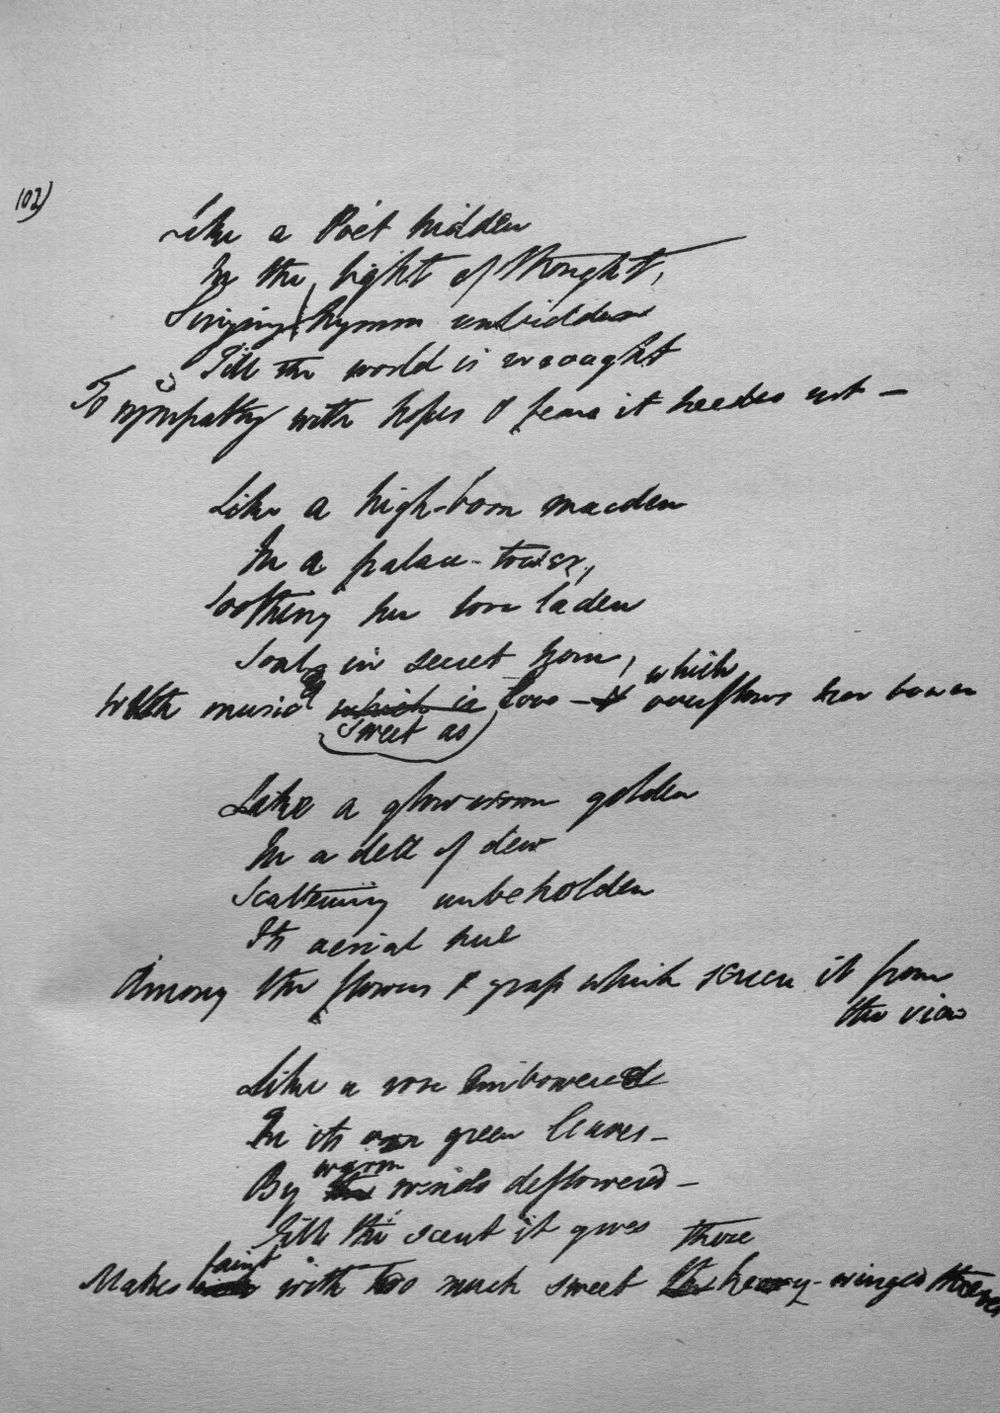 102)
Like a Poet hidden
In the light of thought,
Singing hymns unbidden
Till the world is wrought
To sympathy with hopes & fears it heeded not —
Like a high-born maiden
In a palace-tower,
Soothing her love laden
Soul in secret hour,
which
With music which is love – overflows her bower
sweet as
Like a glowworm golden
In a dell of dew
Scattering unbeholden
Its aerial hue
Among the flowers & grass which screen it from
the view
Like a rose embowered
In its own green leaves –
warm
By the winds deflowered –
Till the scent it gives
these
faint
Makes with too much sweet heavy-winged thieves